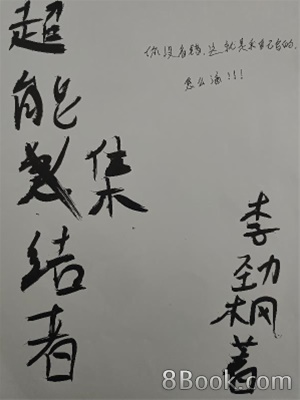 超能集结者
你没看错,这就是我自己写的,
怎么滴!!!
李劲枫著
8Book.com